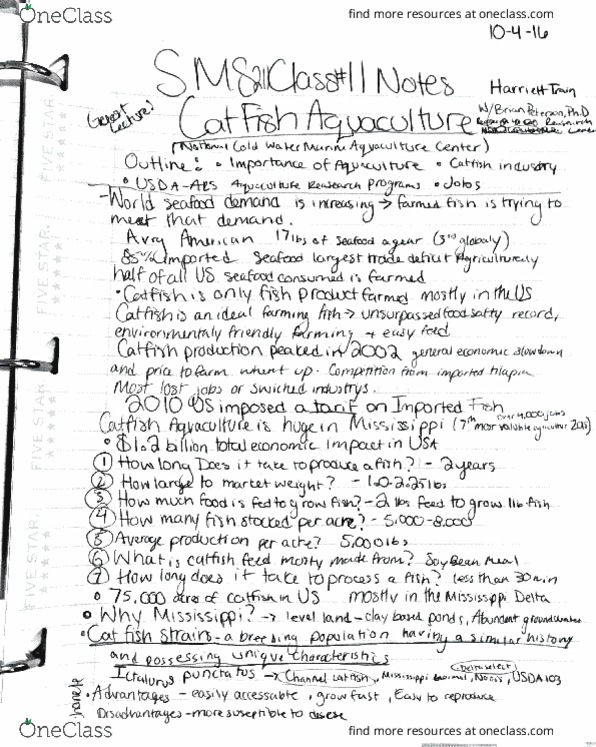 OneClass
find more resources at oneclass.com
10-4-16
SMS211Class#11 Notes
Harriett Train
Guest Lecture!
Catfish Aquaculture
W/Brian Peterson, Ph.D
(National Cold Water Marine Aquaculture Center)
Outline: • Importance of Aquaculture • Catfish industry
• USDA-ARS Aquaculture Reasearch Programs • Jobs
-World seafood demand is increasing → farmed fish is trying to
meet that demand.
Avrg American 17lbs of seafood a year (3rd globaly)
85% imported seafood largest trade deficit Agriculturely
half of all US seafood consumed is farmed
• Catfish is only fish product farmed mostly in the US
Catfish is an ideal farming fish → unsurpassed food safty record,
environmentaly friendly farming + easy feed
Catfish production peated in 2002 general economic slowdown
and price to farm whent up. Competition from imported tilapia
Most lost jobs or swiched industrys.
2010 US imposed a tarif on Imported Fish
over 4,000 jobs
Catfish Aquaculture is huge in Mississippi (7th most valuble
• $1.2 billion total economic impact in USA
① How long Does it take to produce a fish? - 2 years
② How large to market weight? - 1.0-2.25lbs
③ How much food is fed to grow fish? - 2 lbs feed to grow 1lb fish
④ How many fish stocked per acre? - 5,000-8,000
⑤ Average production per acre? 5,000lbs
⑥ What is catfish feed mostly made from? Soy Bean Meal
⑦ How long does it take to process a fish? less than 30min
• 75,000 acres of catfish in US mostly in the Mississippi Delta
• Why Mississippi? → level land - clay based ponds, Abundent groundwater
• Catfish strains - a breeding population having a similar history
and possessing unique characteristics
Delta select
Ictalurus punctatus → Channel catfish, Mississippi normal, Norris, USDA103
• Advantages - easily accessable, grow fast, Easy to reproduce
Disadvantages - more suseptible to disese
FIVE STAR.
FIVE STAR.
FIVE STAR.
FIVE STAR.
OneClass
find more resources at oneclass.com